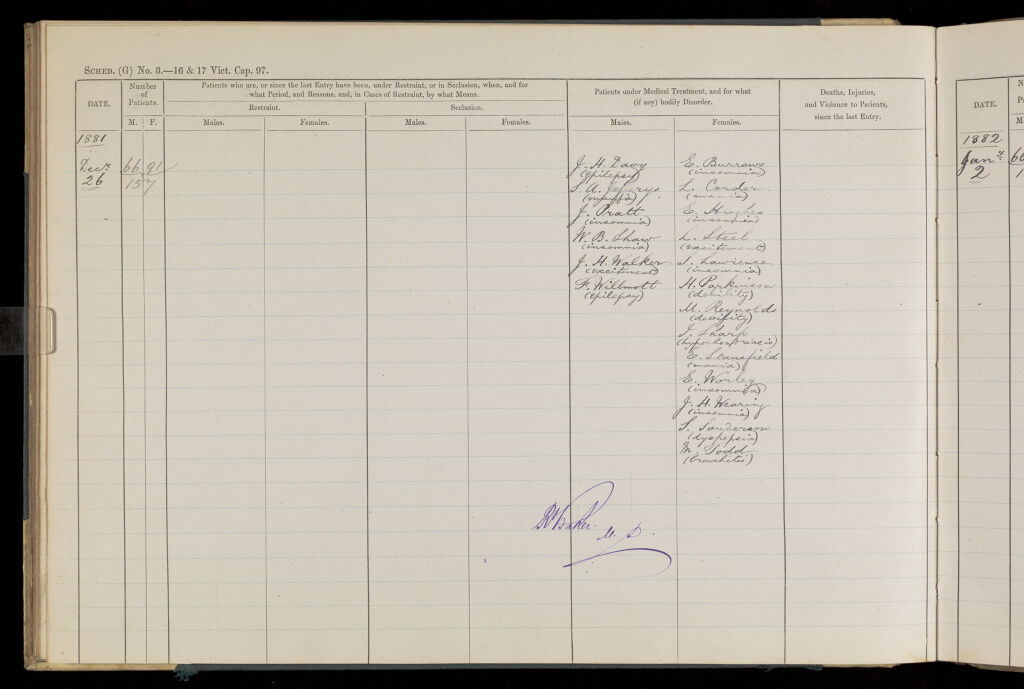 SCHED. (G) No. 3.—16 & 17 Vict. Cap. 97.
DATE.
Number
of
Patients.
M. F.
Patients who are, or since the last Entry have been, under Restraint, or in Seclusion, when, and for
what Period, and Reasons, and, in Cases of Restraint, by what Means.
Restraint.
Seclusion.
Males.
Females.
Males.
Females.
Patients under Medical Treatment, and for what
(if any) bodily Disorder.
Males.
Females.
Deaths, Injuries,
and Violence to Patients,
since the last Entry.
1881
Decr. 66 91
26 157
J. H. Davy
(epilepsy)
S. A. Jefferys
(mania)
J. Pratt
(insomnia)
W. B. Shaw
(insomnia)
J. H. Walker
(excitement)
F. Willmott
(epilepsy)
E. Burrows
(insomnia)
L. Corder
(mania)
E. Hughes
(insomnia)
L. Steel
(excitement)
S. Lawrence
(insomnia)
H. Parkinson
(debility)
M. Reynolds
(debility)
J. Sharp
(hypochondriacis)
E. Stansfield
(mania)
E. Worley
(insomnia)
J. H. Wearing
(insomnia)
S. Sanderson
(dyspepsia)
M. Todd
(bronchitis)
R Baker M.D.
DATE.
1882
Jany.
2